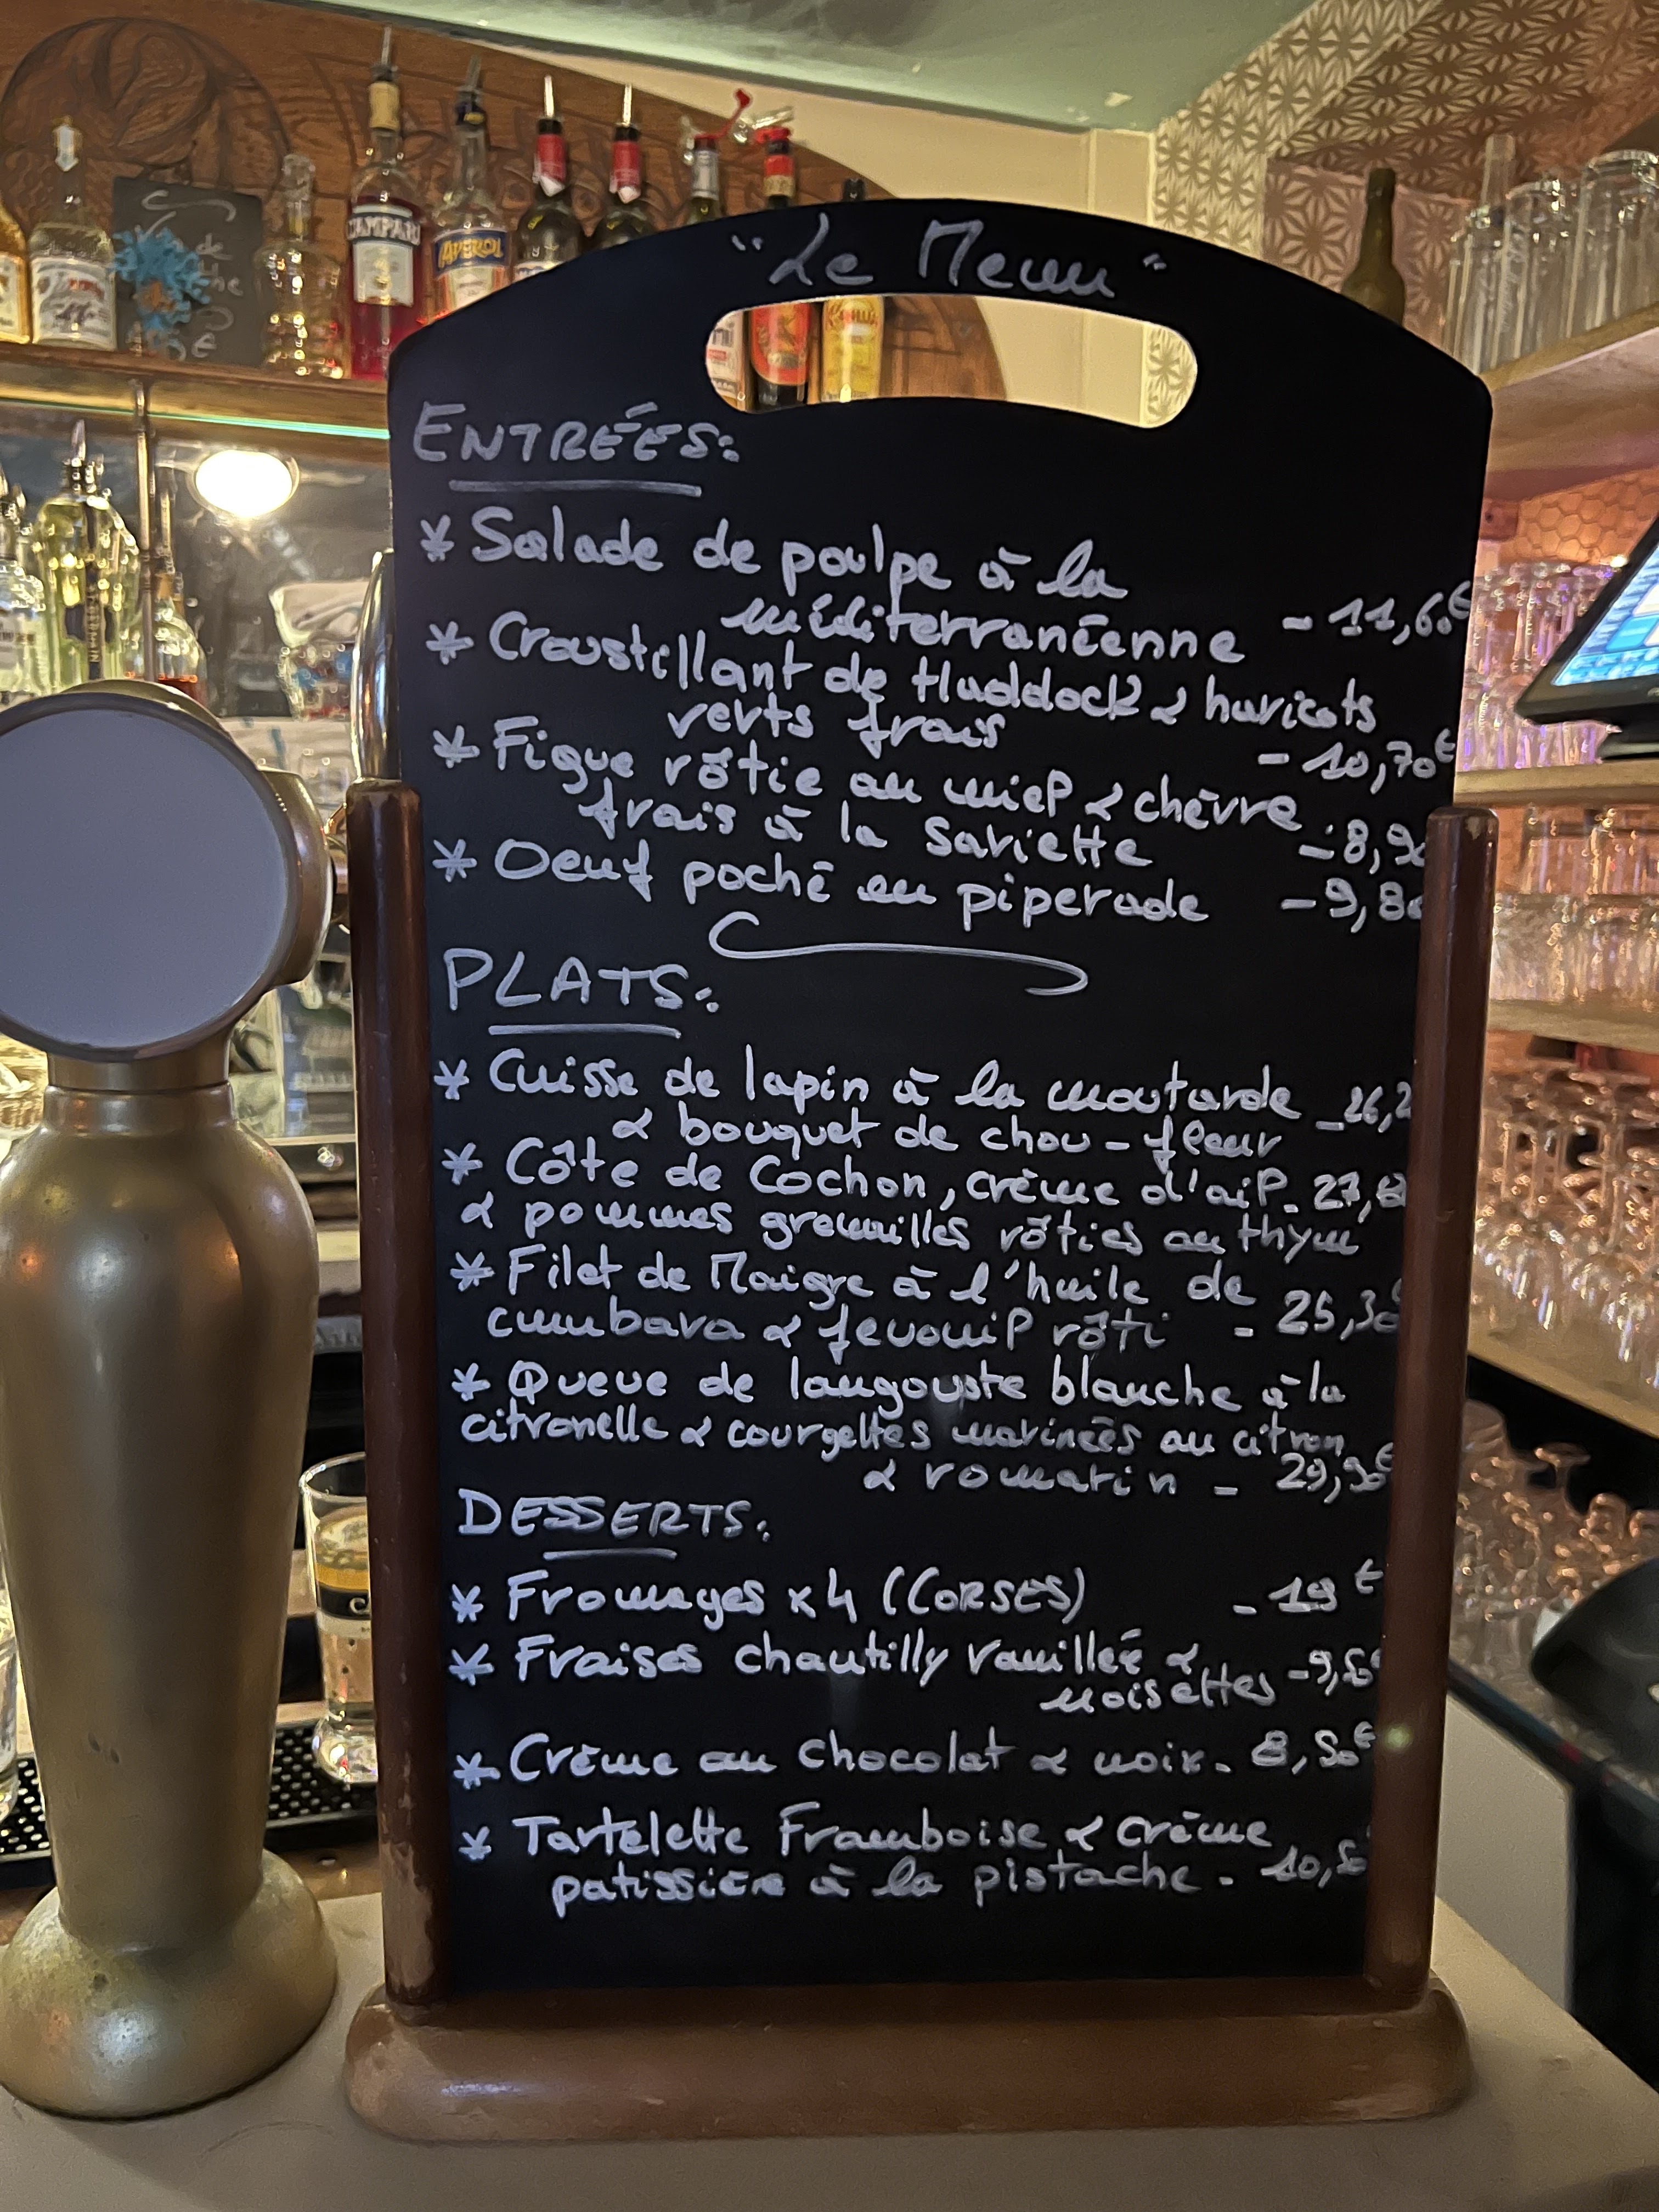 "Le Menu"
ENTRÉES:
* Salade de poulpe à la
méditerranéenne - 11,60€
* Croustillant de Haddock & haricots
verts frais - 10,70€
* Figue rôtie au miel & chèvre
frais à la Sariette - 8,90
* Oeuf poché en piperade - 9,80
PLATS:
* Cuisse de lapin à la moutarde - 26,2
& bouquet de chou-fleur
* Côte de Cochon, crème d'ail - 27,80
& pommes grenailles rôties au thym
* Filet de Maigre à l'huile de
cumbava & fenouil rôti - 25,30€
* Queue de langouste blanche à la
citronelle & courgettes marinées au citron
& romarin - 29,90€
DESSERTS:
* Fromages x4 (CORSES) - 19€
* Fraises chantilly vanillée &
noisettes - 9,50€
* Crème au chocolat & noix - 8,50€
* Tartelette Framboise & crème
patissière à la pistache - 10,50
CAMPARI
APEROL